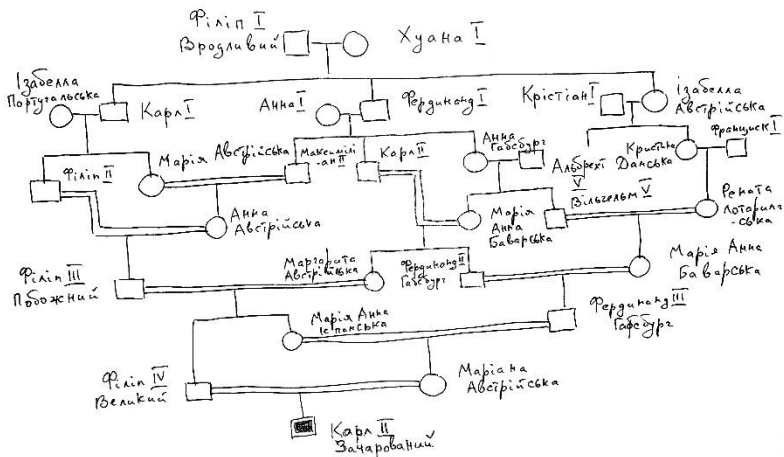 Філіп I
Вродливий
Хуана I
Ізабелла
Португальська
Карл I
Анна I
Фердинанд I
Крістіан I
ізабелла
Австрійська
Філіп II
Марія Австрійська
Максимілі-
ан II
Карл II
Анна
Габсбург
Альбрехт
V
Кристина
Данська
Франциск I
Анна
Австрійська
Марія
Анна
Баварська
Вільгельм V
Рената
Лотаринг-
ська
Філіп III
Побожний
Маргарита
Австрійська
Фердинанд II
Габсбург
Марія Анна
Баварська
Марія Анна
Іспанська
Фердинанд III
Габсбург
Філіп IV
Великий
Маріана
Австрійська
Карл II
Зачарований